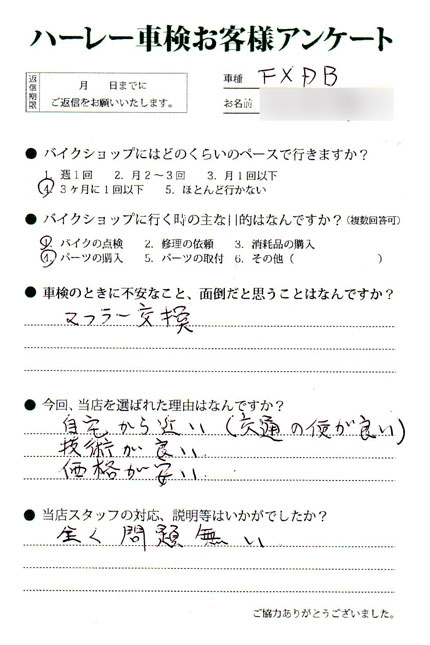 ハーレー車検お客様アンケート
返信期限
月 日までに
ご返信をお願いいたします。
車種 FXDB
お名前
● バイクショップにはどのくらいのペースで行きますか？
1. 週1回 2. 月2～3回 3. 月1回以下
4. 3ヶ月に1回以下 5. ほとんど行かない
● バイクショップに行く時の主な目的はなんですか？（複数回答可）
1. バイクの点検 2. 修理の依頼 3. 消耗品の購入
4. パーツの購入 5. パーツの取付 6. その他（ ）
● 車検のときに不安なこと、面倒だと思うことはなんですか？
マフラー交換
● 今回、当店を選ばれた理由はなんですか？
自宅から近い（交通の便が良い）
技術が良い
価格が安い
● 当店スタッフの対応、説明等はいかがでしたか？
全く問題無い
ご協力ありがとうございました。